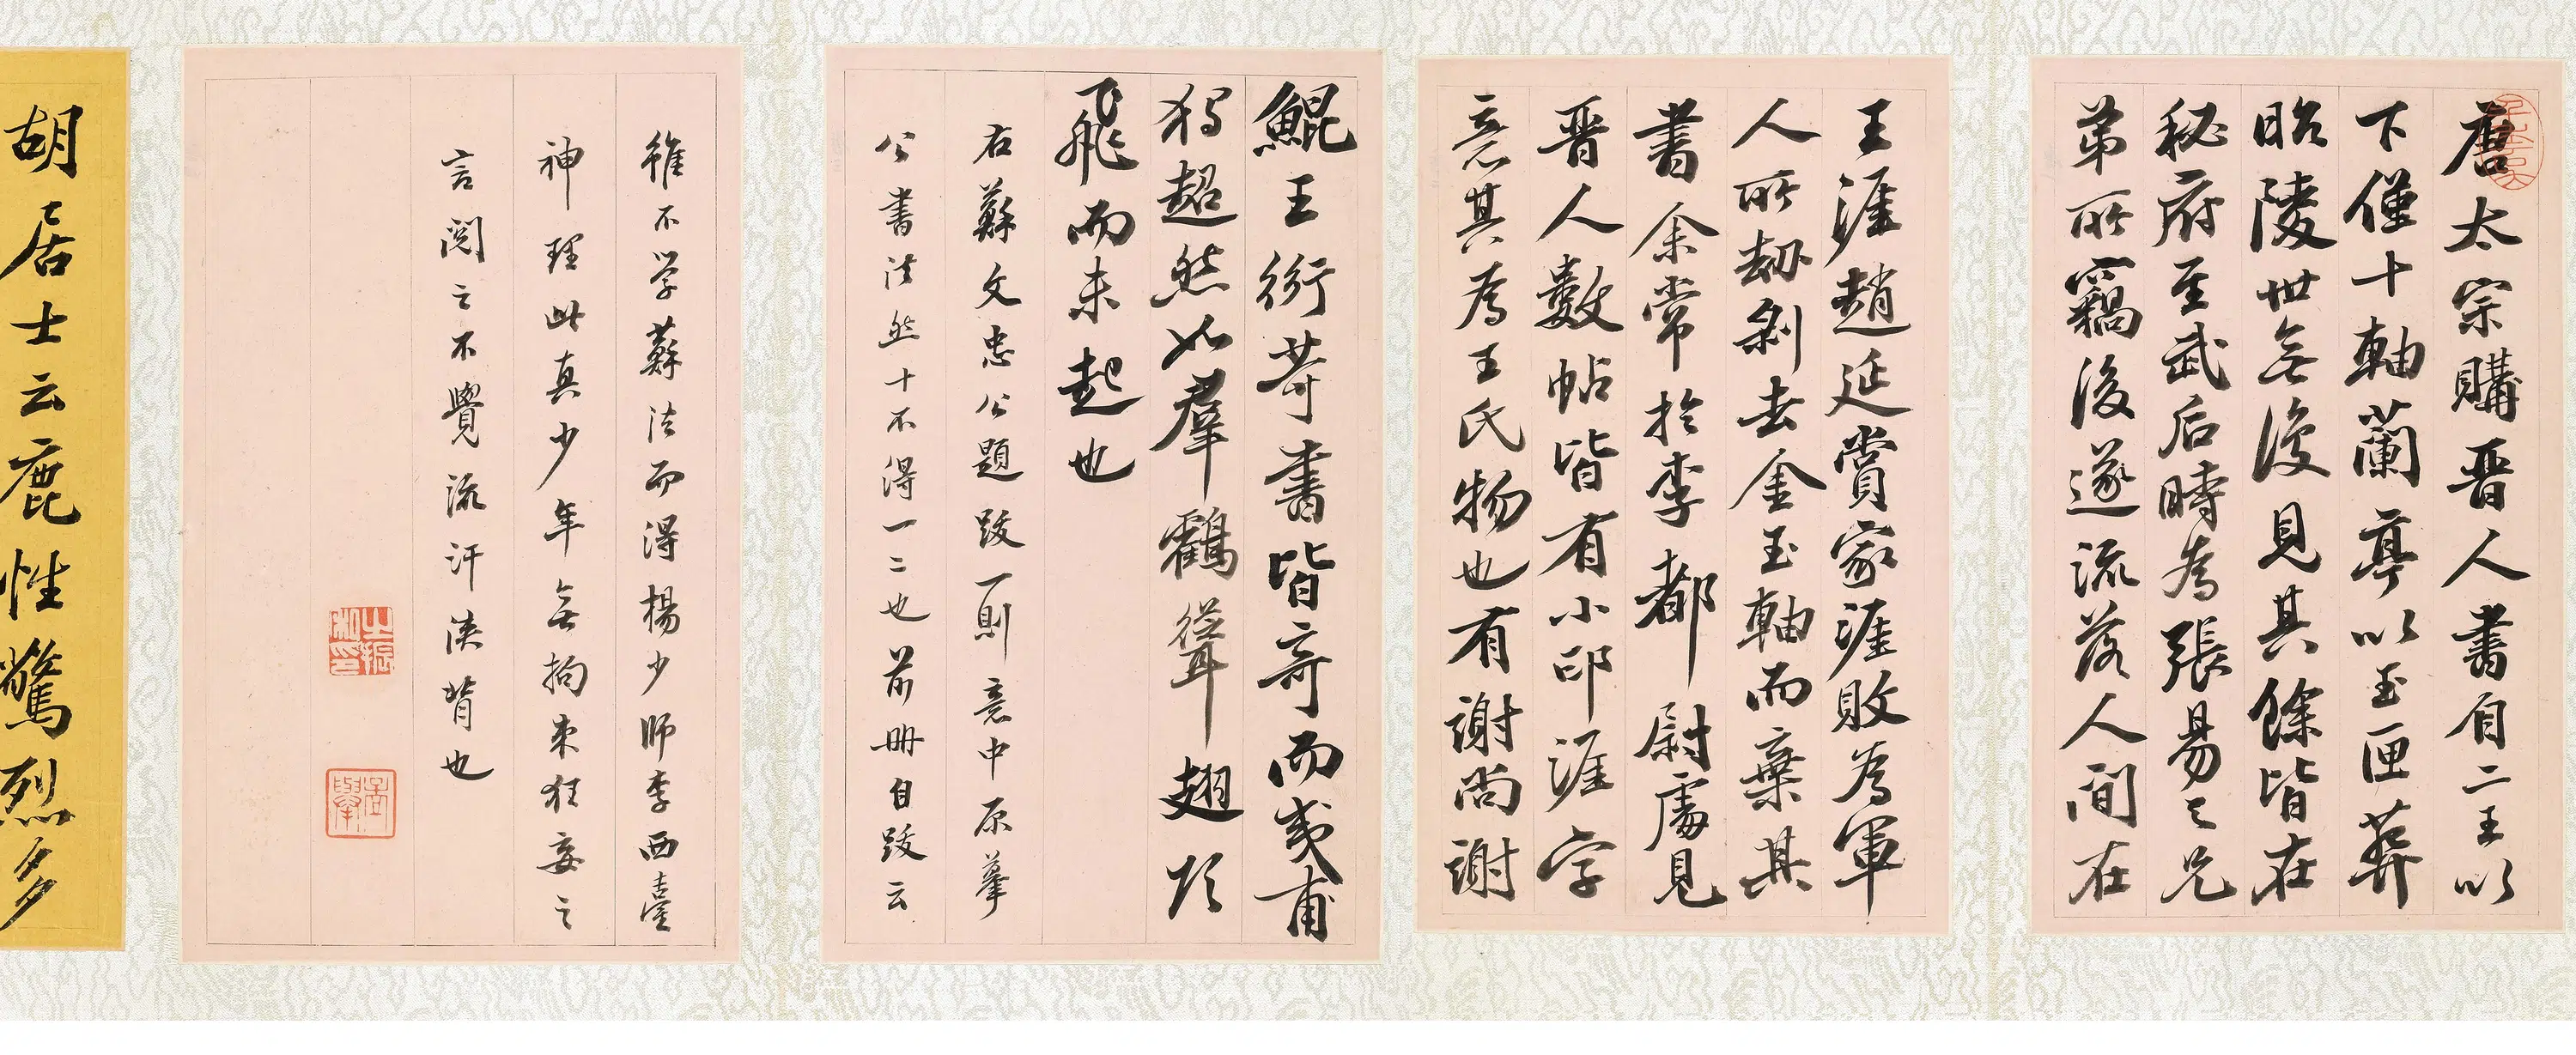 唐太宗購晋人書自二王以
下僅十軸蘭亭以玉匣葬
昭陵世無復見其餘皆在
秘府至武后時為張易之兄
弟所竊後遂流落人間在
王涯趙延賞家涯敗為軍
人所刼剝去金玉軸而棄其
書余常於李都尉處見
晋人數帖皆有小印涯字
意其為王氏物也有謝尚謝
鯤王衍等書皆奇而夷甫
獨超然如羣鶴聳翅欲
飛而未起也
右蘇文忠公題跋一則意中原摹
公書法然十不得一二也前册自跋云
雖不学蘇法而得楊少師李西臺
神理此真少年無拘束狂妄之
言閱之不覺流汗浹背也
胡居士云鹿性驚烈多